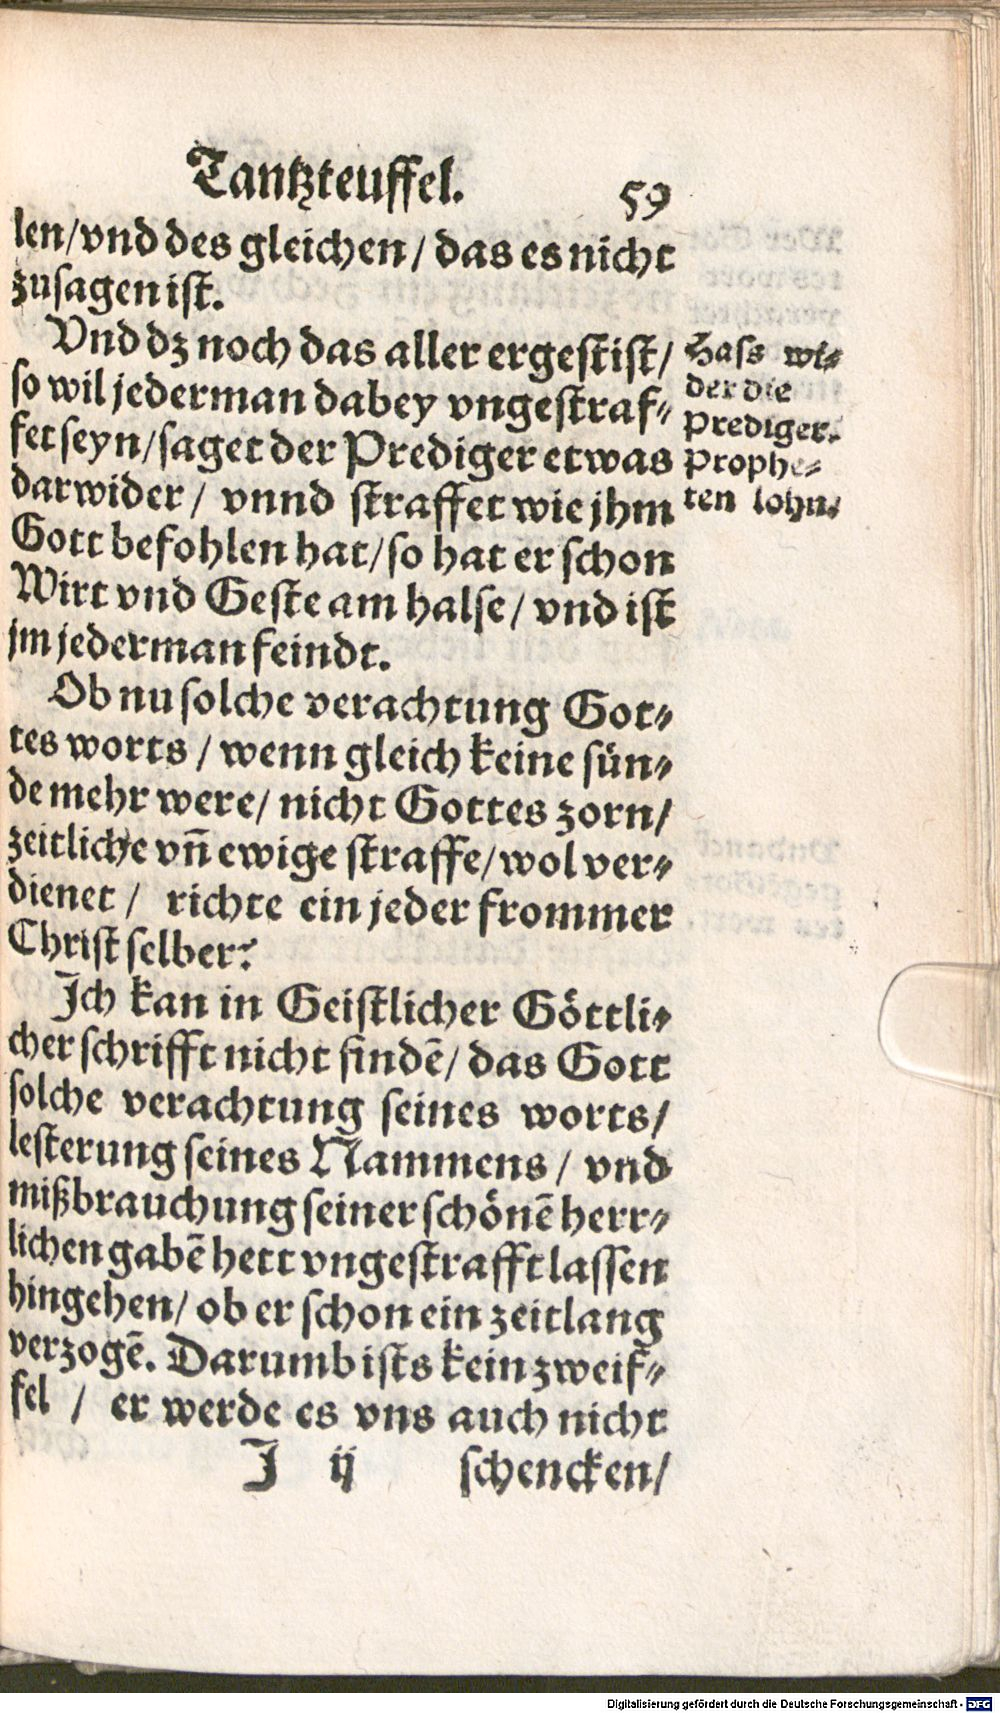 Tantzteuffel. 59
len/vnd des gleichen/ das es nicht
zusagen ist.
Vnd dz noch das aller ergest ist/
so wil jederman dabey vngestraf-
fet seyn/saget der Prediger etwas
darwider/ vnnd straffet wie jhm
Gott befohlen hat/so hat er schon
Wirt vnd Geste am halse/ vnd ist
jm jederman feindt.
Hass wi-
der die
Prediger.
Prophe-
ten lohn.
Ob nu solche verachtung Got-
tes worts/ wenn gleich keine sün-
de mehr were/ nicht Gottes zorn/
zeitliche vñ ewige straffe/wol ver-
dienet/ richte ein jeder frommer
Christ selber?
Ich kan in Geistlicher Göttli-
cher schrifft nicht findē/ das Gott
solche verachtung seines worts/
lesterung seines Nammens/ vnd
mißbrauchung seiner schönē herr-
lichen gabē hett vngestrafft lassen
hingehen/ ob er schon ein zeitlang
verzogē. Darumb ists kein zweif-
fel / er werde es vns auch nicht
J ij schencken/
Digitalisierung gefördert durch die Deutsche Forschungsgemeinschaft - DFG